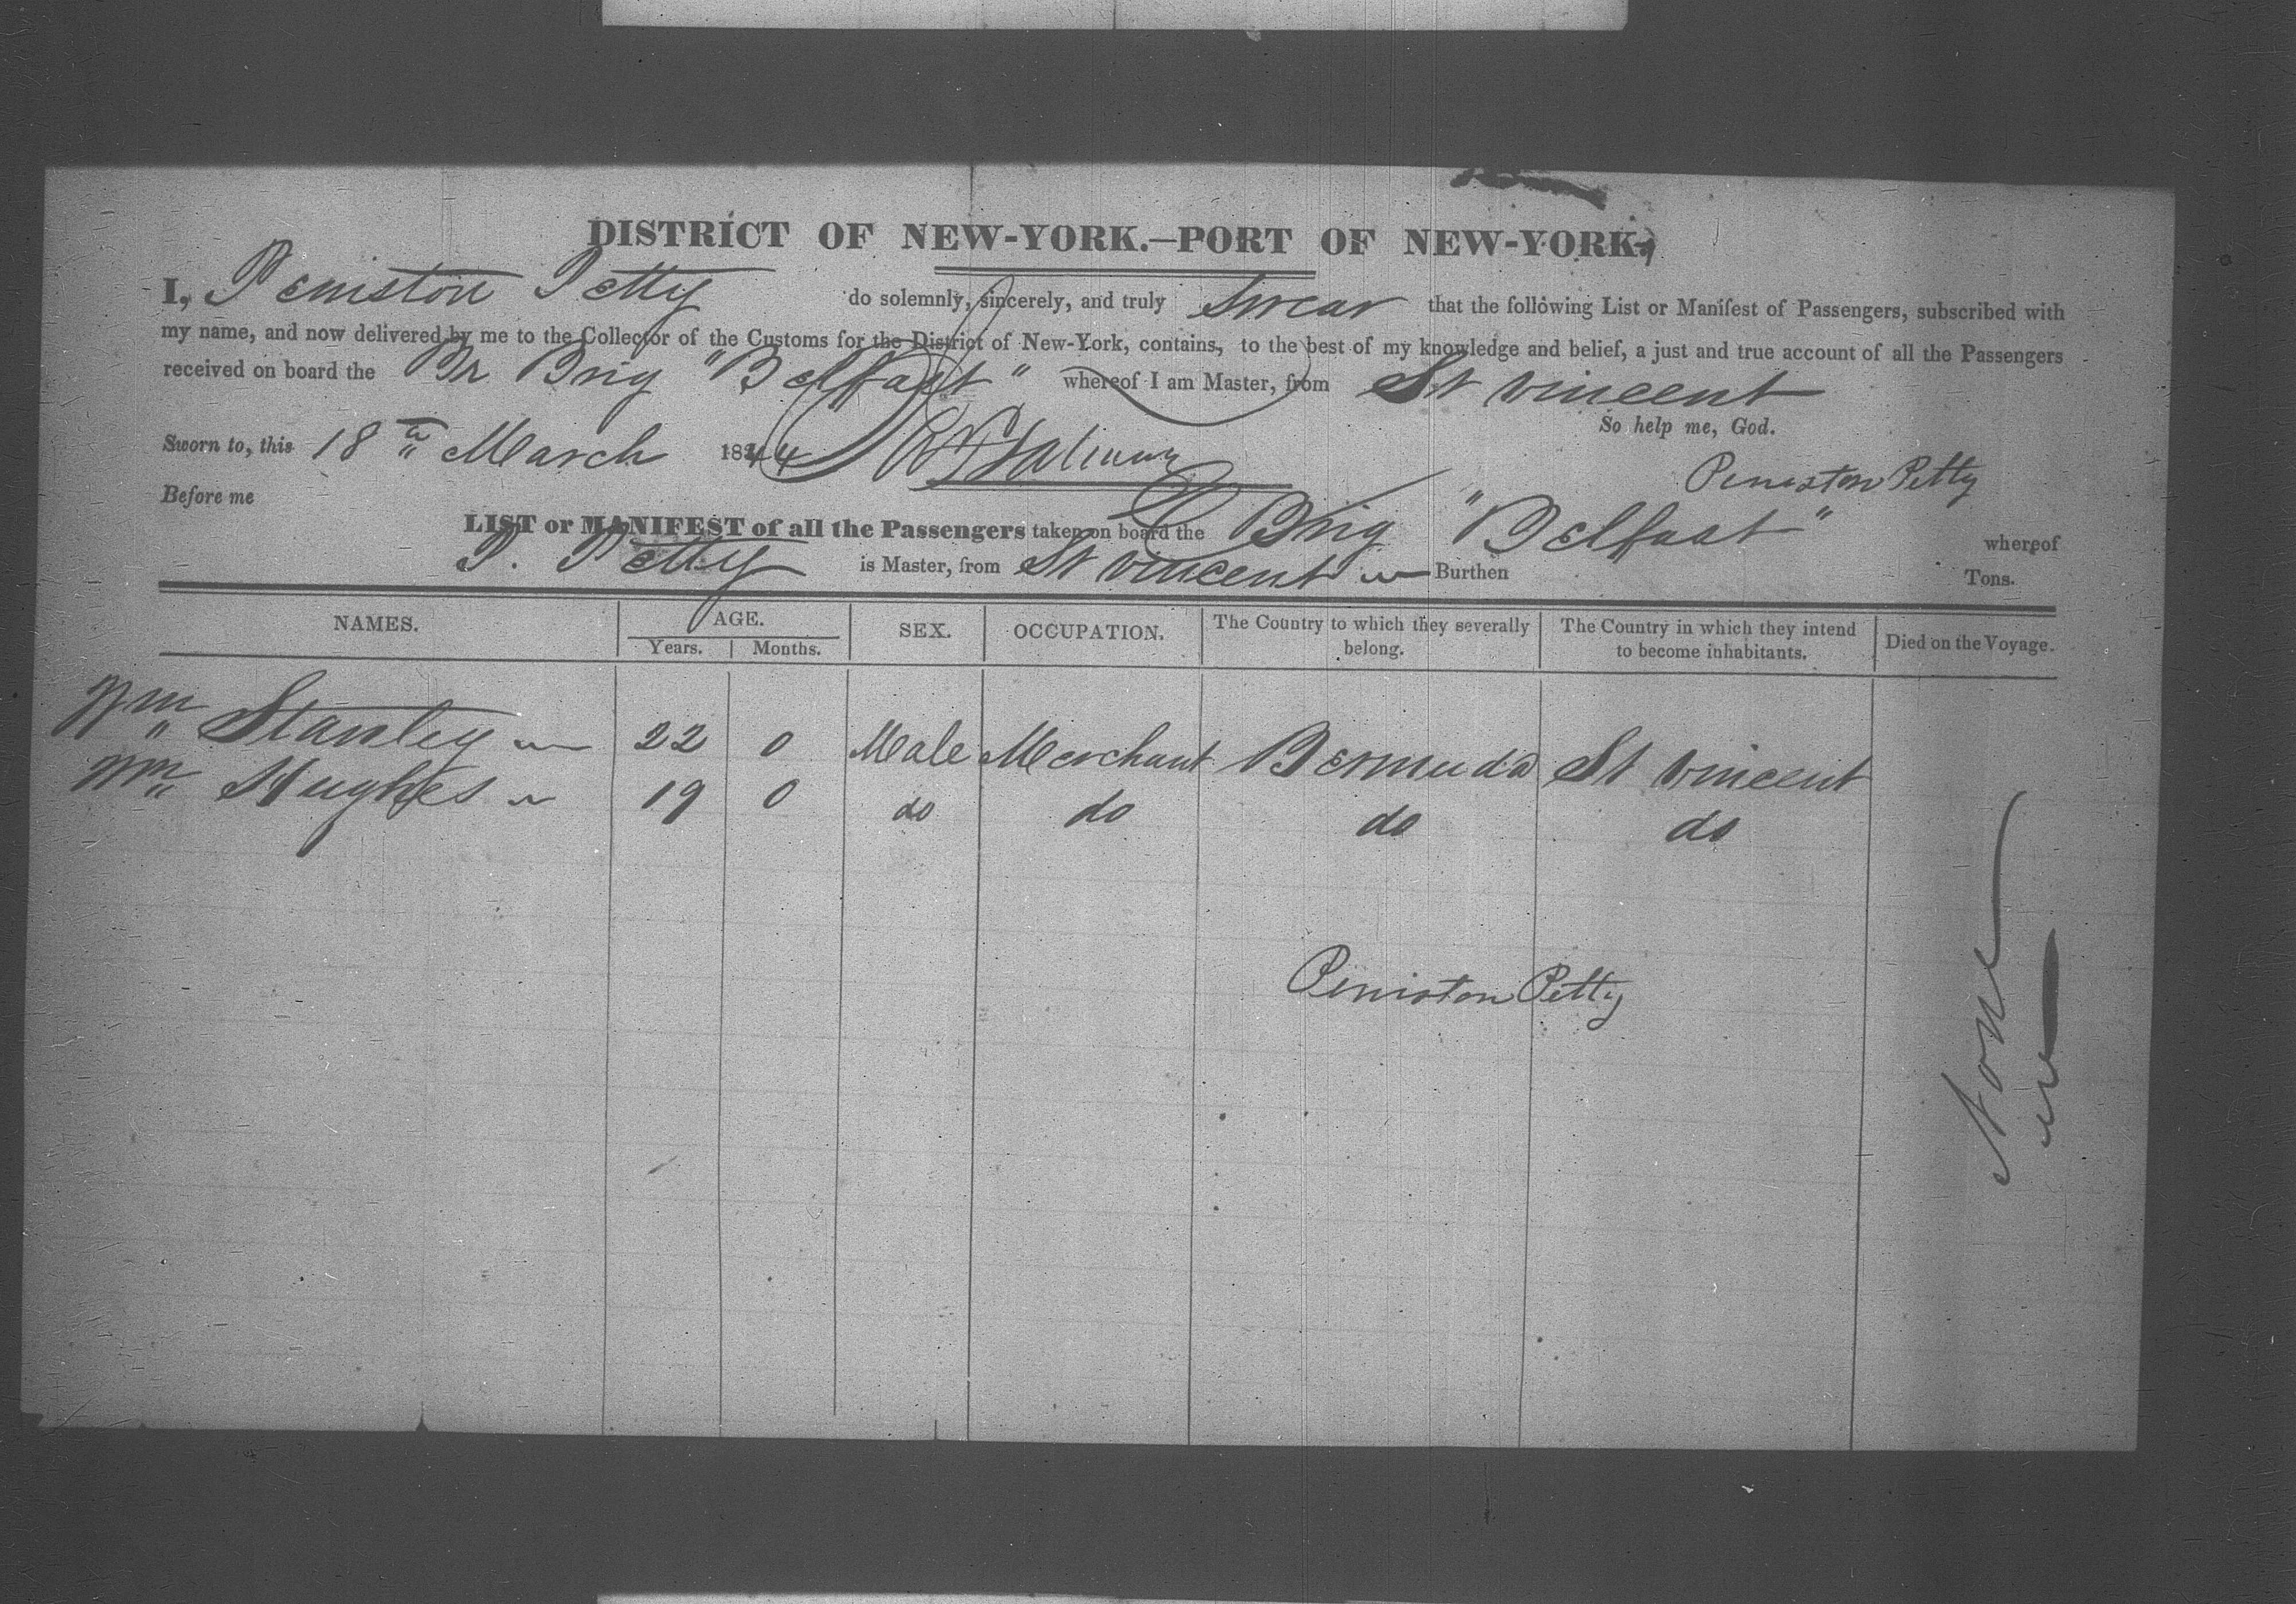 DISTRICT OF NEW-YORK.—PORT OF NEW-YORK.
I, Peniston Petty do solemnly, sincerely, and truly Swear that the following List or Manifest of Passengers, subscribed with
my name, and now delivered by me to the Collector of the Customs for the District of New-York, contains, to the best of my knowledge and belief, a just and true account of all the Passengers
received on board the Br Brig "Belfast" whereof I am Master, from St Vincent
So help me, God.
Sworn to, this 18th March 1844
Peniston Petty
Before me
LIST or MANIFEST of all the Passengers taken on board the Brig "Belfast" whereof
P. Petty is Master, from St Vincent Burthen Tons.
NAMES. AGE. SEX. OCCUPATION. The Country to which they severally belong. The Country in which they intend to become inhabitants. Died on the Voyage.
Years. Months.
Wm Stanley 22 0 Male Merchant Bermuda St Vincent
Wm Hughes 19 0 do do do do
None
Peniston Petty